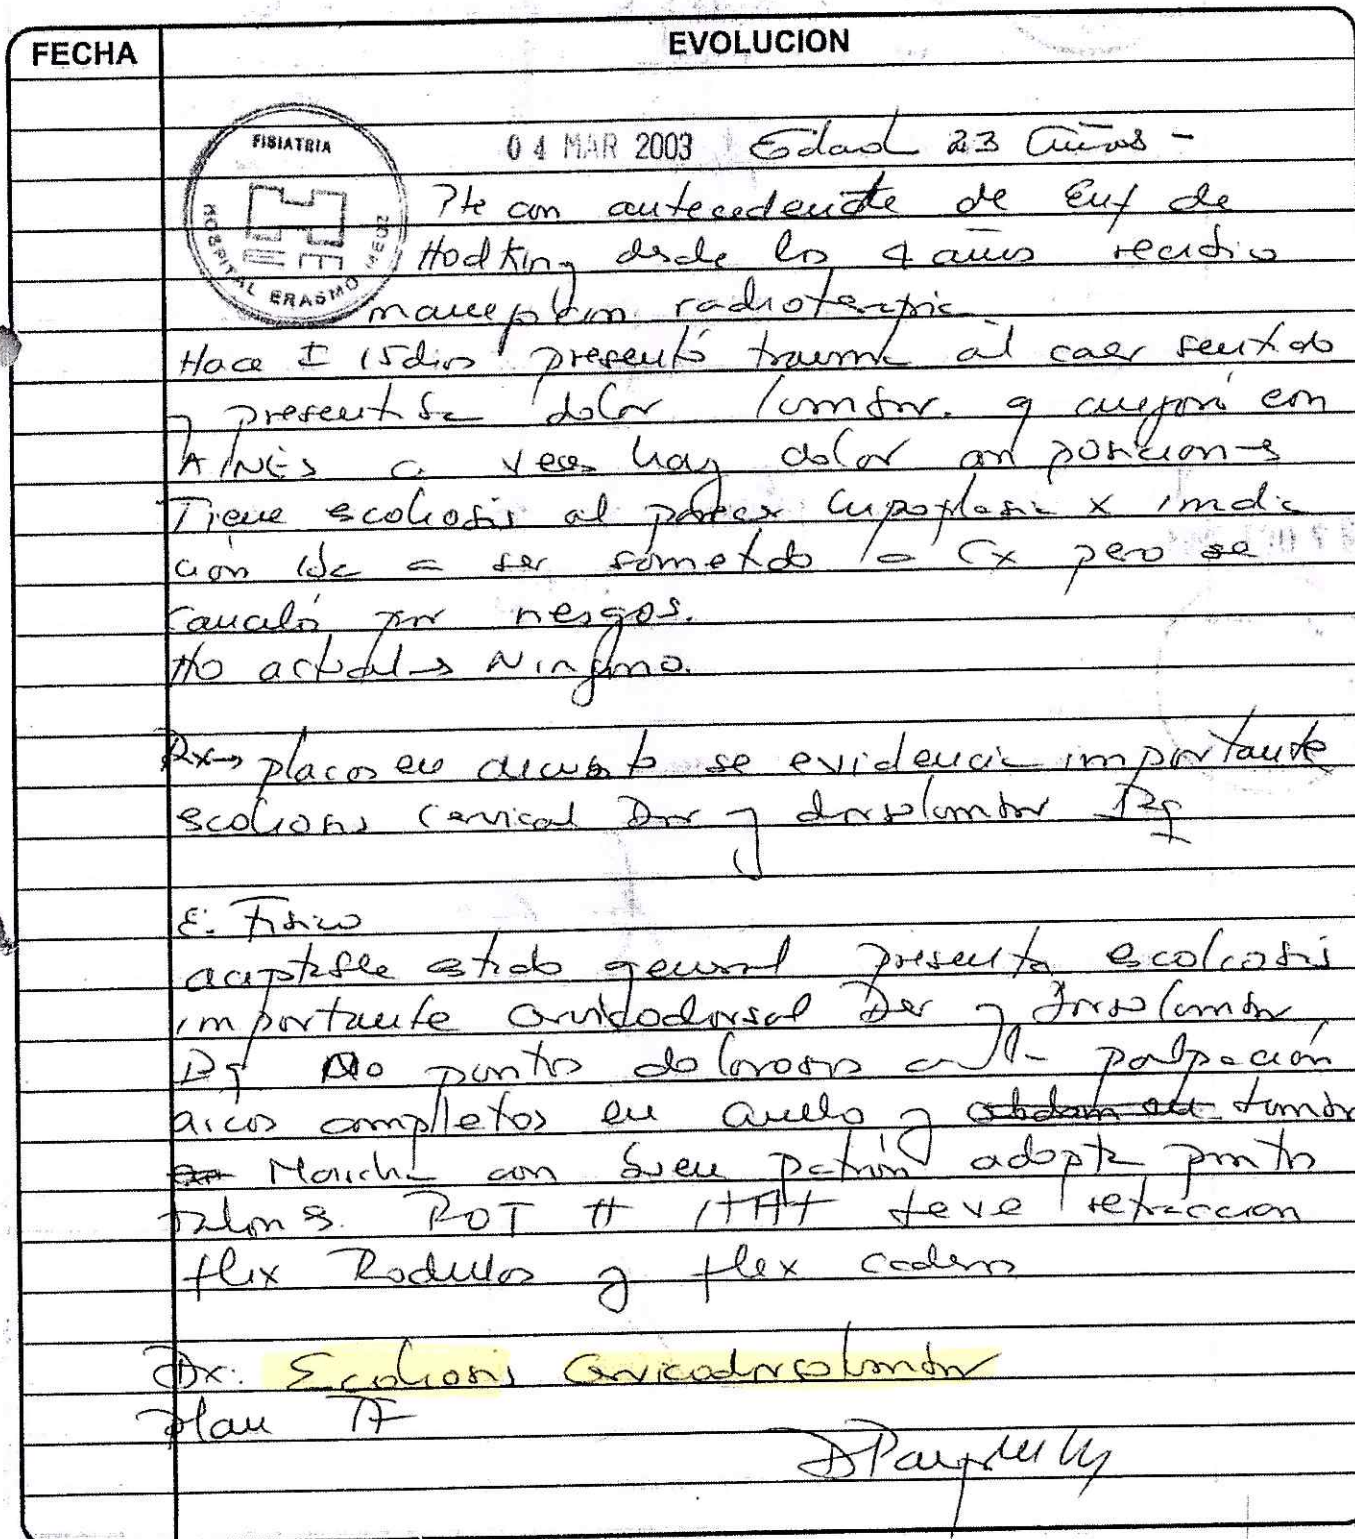 FECHA EVOLUCION
FISIATRIA
HOSPITAL ERASMO MEOZ
04 MAR 2003 Edad 23 años -
Pte con antecedente de Enf de
Hodking desde los 4 años recibio
radioterapia
Hace ± 15 dias presentó trauma al caer sentado
y presenta dolor lumbar. y mejoró con
AINES a veces hay dolor en posiciones
Tiene escoliosis al parecer hipoplasia x
ción iba a ser sometido a Cx pero se
canceló por riesgos.
Tto actual → Ninguno.
Rx → placas en decubito se evidencia importante
escoliosis cervical Der y dorsolumbar Izq
E. Fisico
aceptable estado general presenta escoliosis
importante cervicodorsal Der y dorsolumbar
Izq No puntos dolorosos a la palpación
arcos completos en cuello y lumbar
Marcha con buen patrón adopta puntas
talones. ROT ++ leve retracción
flex Rodillas y flex cadera
Dx: Escoliosis Cervicodorsolumbar
Plan TF